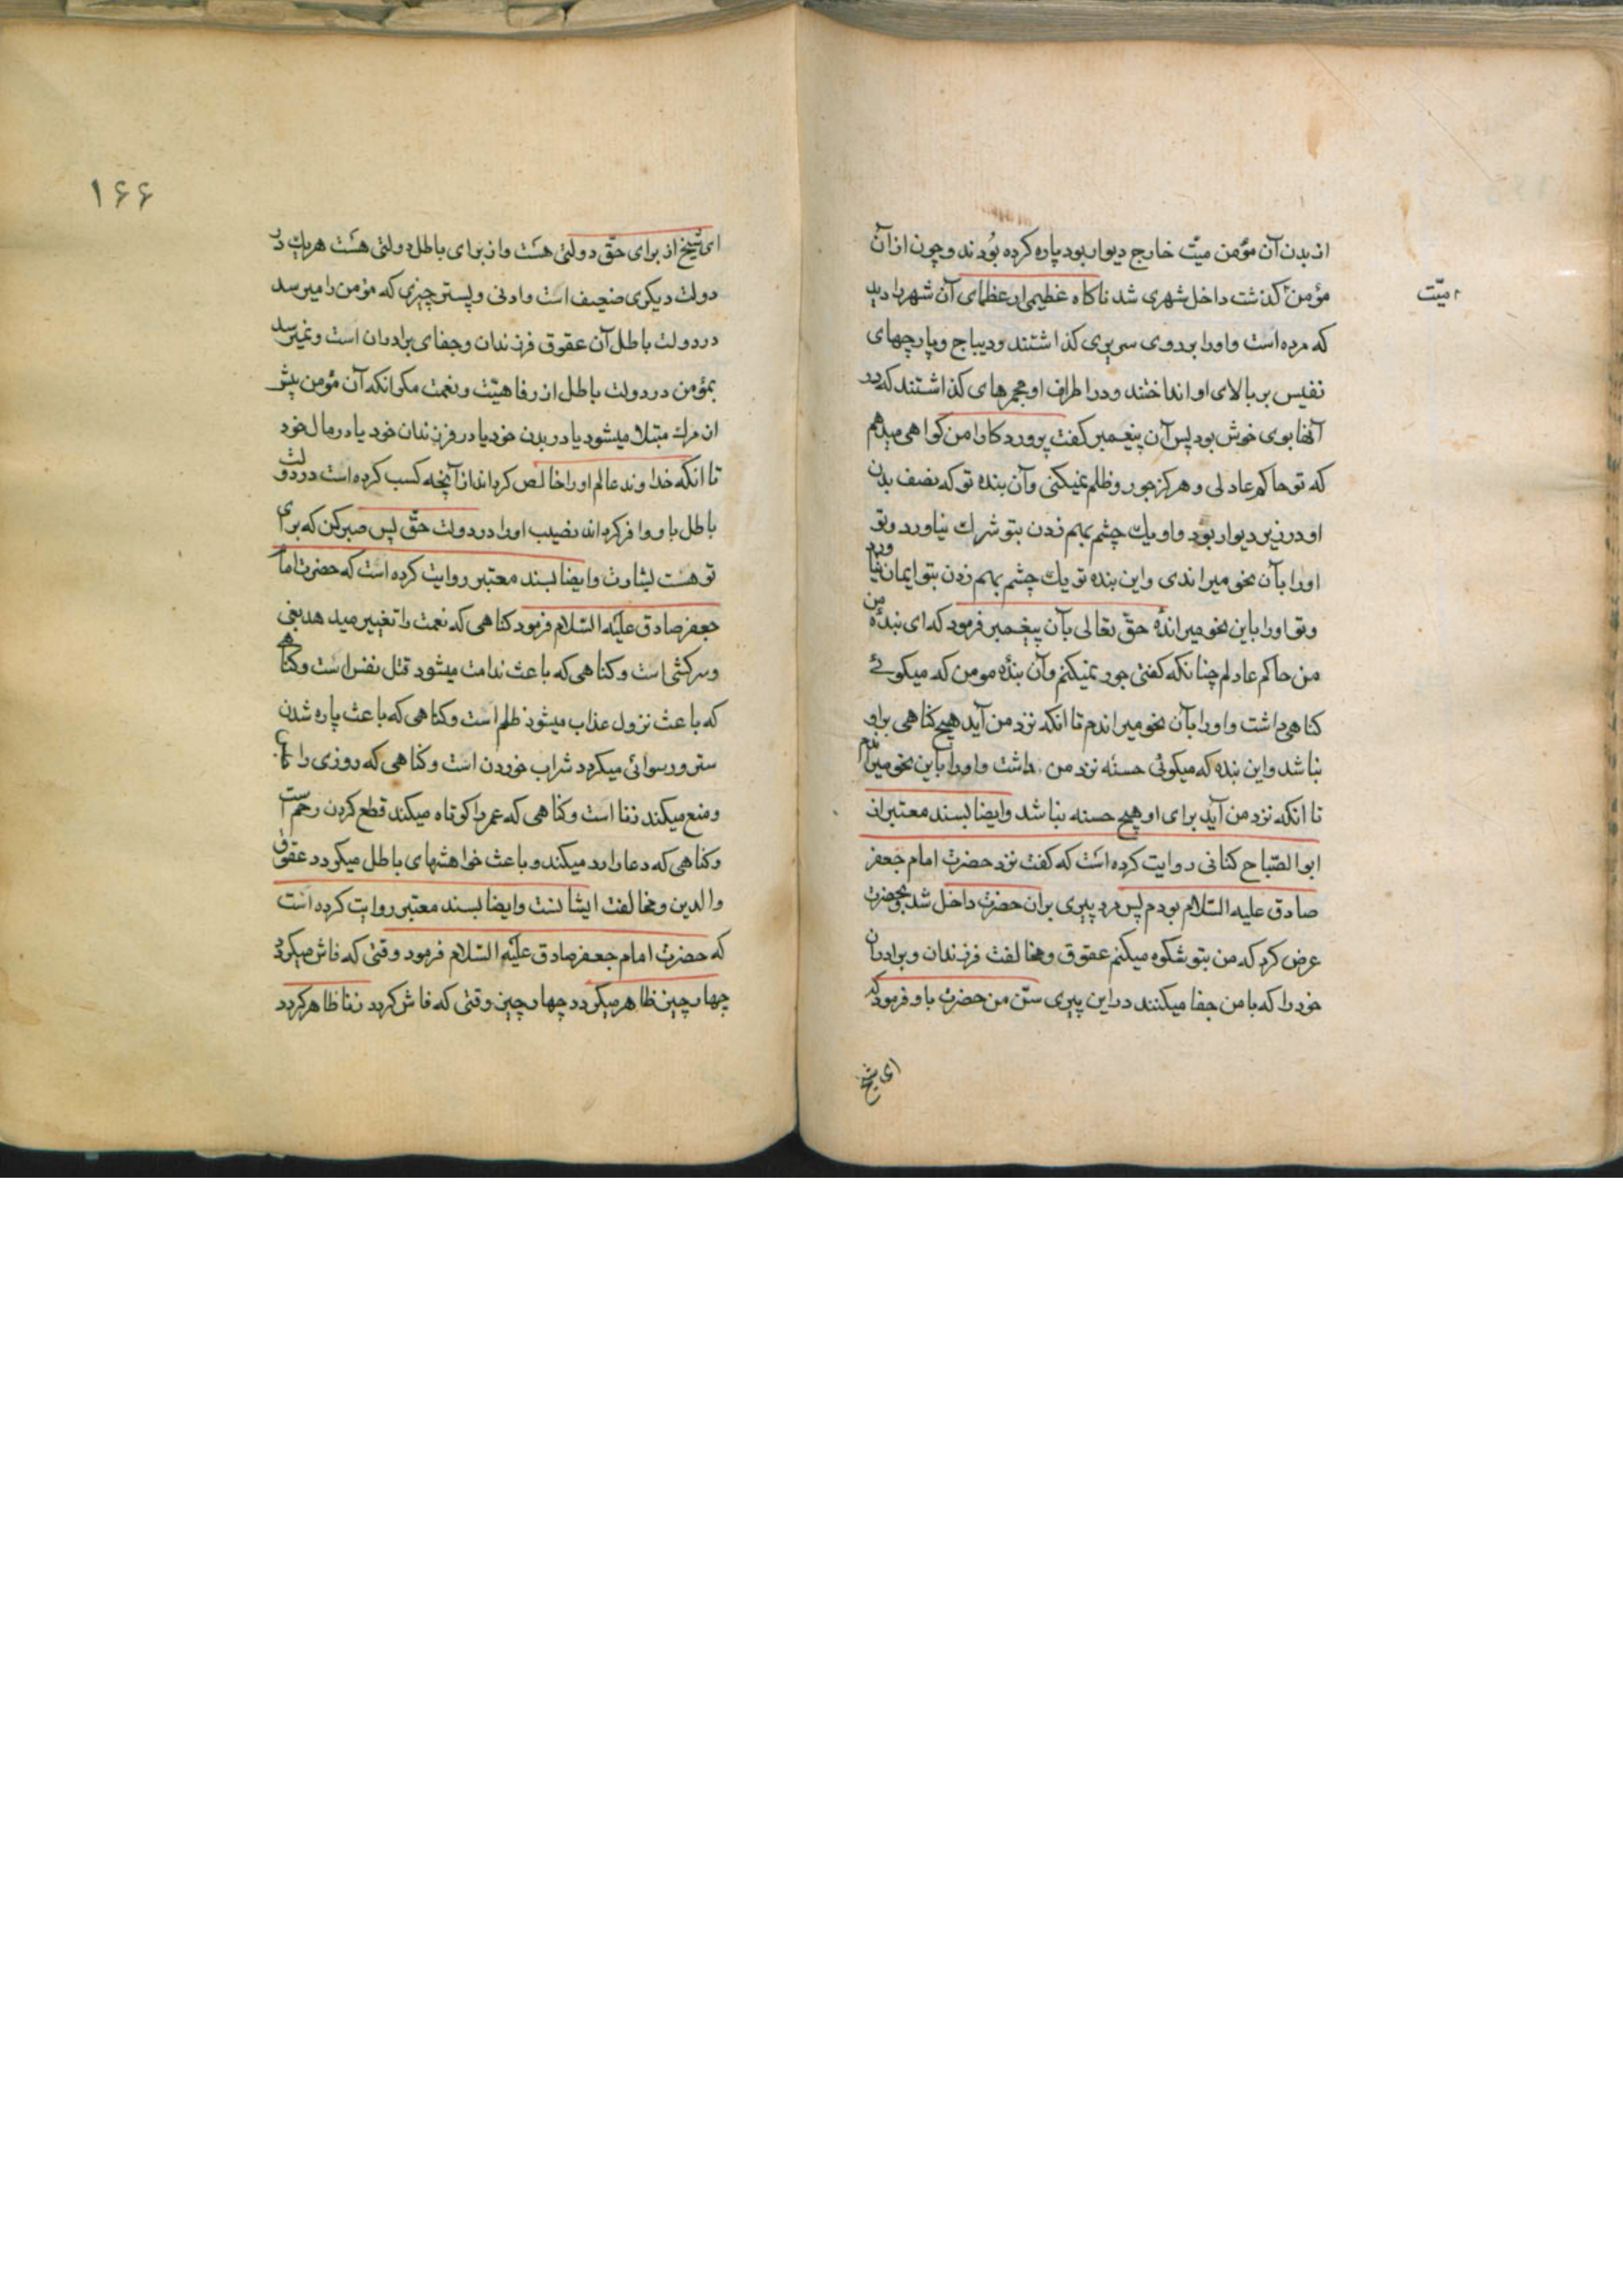 از بدن آن مؤمن میّت خارج دیوار بود پاره کرده بُودند و چون از آن
مؤمن گذشت داخل شهری شد ناکاه عظیمی از عظمای آن شهر را دید
امیّت
که مرده است و او را بر روی سریری کذاشتند و دیباج و پارچهای
نفیس بر بالای او انداختند و در اطراف او مجمرهای کذاشتند که در
آنها بوی خوش بود پس آن پیغمبر کفت پروردکارا من کواهی میدهم
که تو حاکم عادلی و هرکز جور و ظلم نمیکنی و آن بنده تو که نصف بدن
او در زیر دیوار بود و او یك چشم بهم زدن بتو شرك نیاورد و تو
او را بآن نحو میراندی و این بنده تو یك چشم بهم زدن بتو ایمان نیاورد
و تو او را باین نحو میراندهٔ حقّ تعالی بآن پیغمبر فرمود که ای بندهٔ من
من حاکم عادلم چنانکه کفتی جور نمیکنم و آن بندهٔ مومن که میکوئے
کناهی داشت و او را بآن نحو میراندم تا انکه نزد من آید هیچ کناهی بر او
نباشد و این بنده که میکوئی حسنه نزد من داشت و او را باین نحو میراندم
تا انکه نزد من آید برای او هیچ حسنه نباشد و ایضا بسند معتبر از
ابو الصّباح کنانی روایت کرده است که کفت نزد حضرت امام جعفر
صادق علیه السّلام بودم پس مرد پیری بران حضرت داخل شد و بحضرت
عرض کرد که من بتو شکوه میکنم عقوق و مخالفت فرزندان و برادران
خود را که با من جفا میکنند در این پیری سنّ من حضرت باو فرمود که
ای شیخ
۱۶۶
ای شیخ از برای حقّ دولتی هست و از برای باطل دولتی هست هریك در
دولت دیکری ضعیف است و ادنی و پستر چیزی که مؤمن را میرسد
در دولت باطل آن عقوق فرزندان و جفای برادران است و نمیرسد
بمؤمن در دولت باطل از رفاهیّت و نعمت مکر انکه آن مؤمن پیش
از مرك مبتلا میشود یا در بدن خود یا در فرزندان خود یا در مال خود
تا انکه خداوند عالم او را خالص کرداند از آنچه کسب کرده است در دولت
باطل با و وافر کرداند نصیب او را در دولت حقّ پس صبر کن که برای
تو هست بشارت و ایضا بسند معتبر روایت کرده است که حضرت امام
جعفر صادق علیه السّلام فرمود کناهی که نعمت را تغییر میدهد بغی
و سرکشی است و کناهی که باعث ندامت میشود قتل نفس است و کناهی
که باعث نزول عذاب میشود ظلم است و کناهی که باعث پاره شدن
ستر و رسوائی میکردد شراب خوردن است و کناهی که روزی را
و منع میکند زنا است و کناهی که عمر را کوتاه میکند قطع کردن رحم است
و کناهی که دعا را رد میکند و باعث خواهشهای باطل میکردد عقوق
والدین و مخالفت ایشانست و ایضا بسند معتبر روایت کرده است
که حضرت امام جعفر صادق علیه السّلام فرمود وقتی که فاش میکردد
چهار چیز ظاهر میکردد چهار چیز وقتی که فاش کردد زنا ظاهر کردد